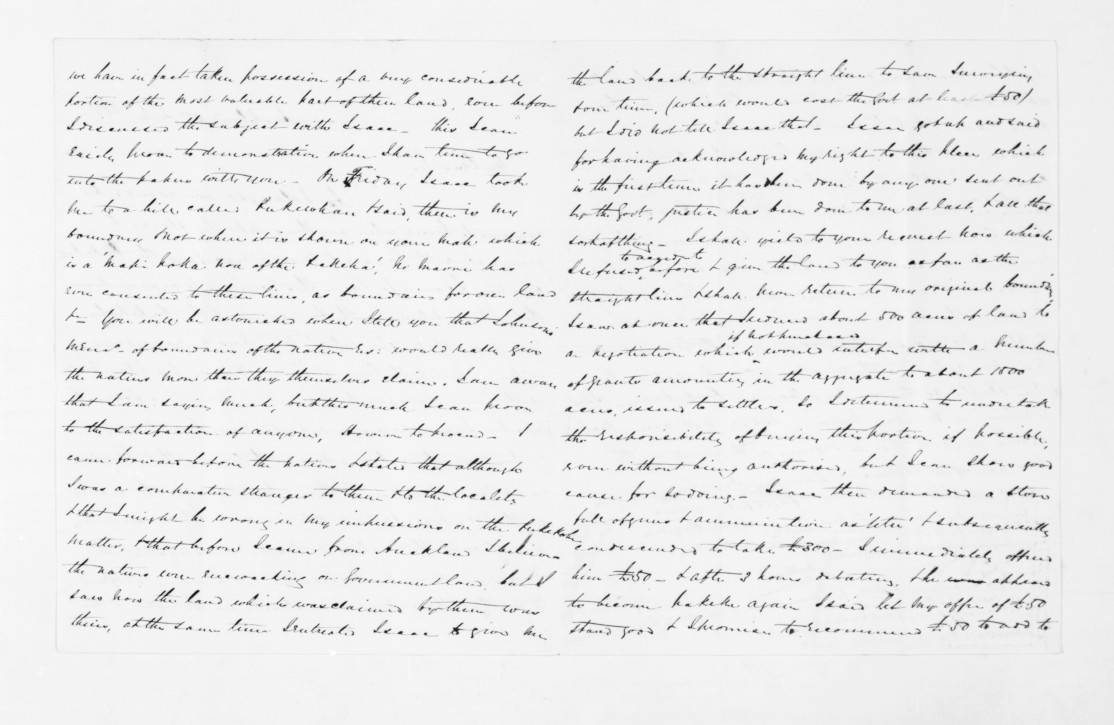 we have in fact taken possession of a very considerable
portion of the most valuable part of their land, even before
I discussed the subject with Isaac - this I can
easily prove to demonstration when I have time to go
into the papers with you - On Friday Isaac took
me to a hill called Pukewhau & said, there is my
boundary & not where it is shown on your map which
is a 'mapi hoka noa of the Pakeha', no Maori has
ever consented to these lines, as boundaries for our land
&c - You will be astonished when I tell you that Johnson's
of boundaries of the native would really give
the natives more than they themselves claim. I am aware
that I am saying much, but this much I can prove
to the satisfaction of anyone, However to proceed - I
came forward before the natives & stated that although
I was a comparative stranger to them & to the locality
& that I might be wrong in my impressions on the Pukekohe
matter, & that before I came from Auckland I believed
the natives were encroaching on Government land, but I
saw now the land which was claimed by them was
theirs, at the same time I entreated Isaac to give me
the land back to the straight line to save surveying
some time, (which would cost the Govt at least £50)
but I did not tell Isaac that - Isaac got up and said
for having acknowledged my right to this place which
is the first time it has been done by any one sent out
by the Govt, justice has been done to me at last, & all that
sort of thing - I shall yield to your request now which
to accede to
I refused before & give the land to you as far as the
straight line & shall now return to my original boundary
I saw at once that I secured about 500 acres of land to
if not purchased
a negotiation which would interfere with a number
of grants amounting in the aggregate to about 1000
acres, issued to settlers. So I determined to undertake
the responsibility of buying this portion if possible,
even without being authorised, but I can show good
cause for so doing. - Isaac then demanded a store
full of guns & ammunition as 'utu' & subsequently
condescended to take £300 - I immediately offered
him £50 - & after 3 hours debating, & he appeared
to become pakeke again I said let my offer of £50
stand good & I promise to recommend £50 to add to